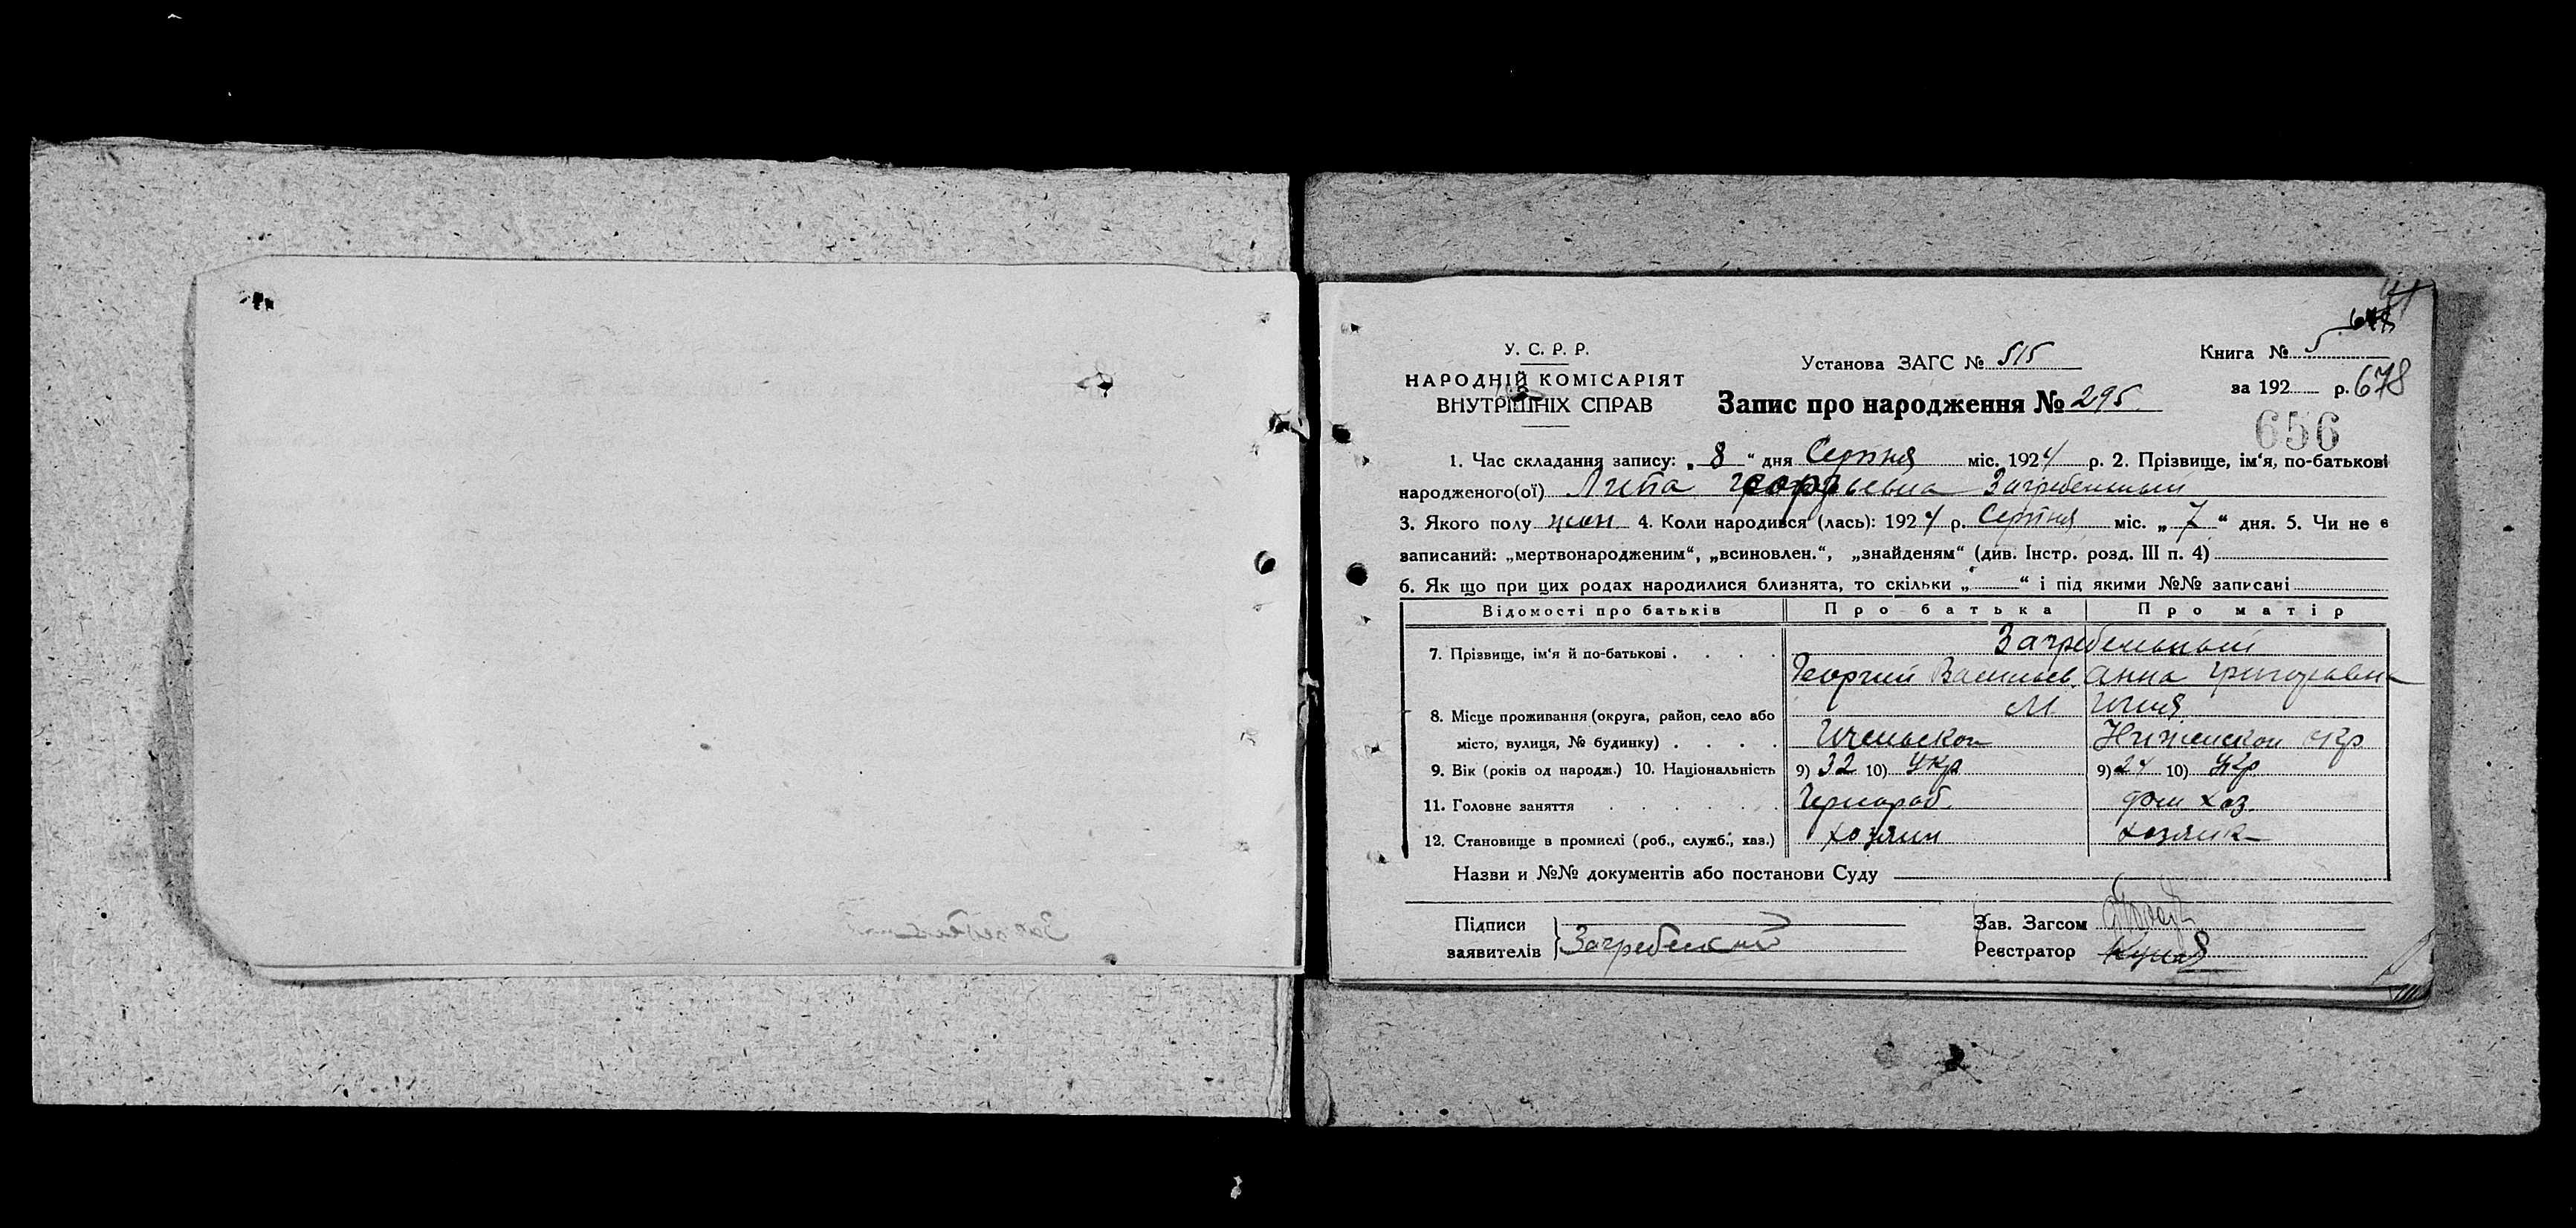 678
У. С. Р. Р.
НАРОДНІЙ КОМІСАРІЯТ
ВНУТРІШНІХ СПРАВ
Установа ЗАГС № 515
Запис про народження № 295
Книга № 5
за 192 р. 678
656
1. Час складання запису: „ 8 “ дня Серпня міс. 1924 р. 2. Прізвище, ім‘я, по-батькові
народженого(ої) Георгьевна
3. Якого полу жен 4. Коли народився (лась): 1924 р. Серпня міс. „ 7 “ дня. 5. Чи не є
записаний: „мертвонародженим“, „всиновлен.“, „знайденям“ (див. Інстр. розд. III п. 4)
6. Як що при цих родах народилися близнята, то скільки „ “ і під якими №№ записані
Відомості про батьків Про батька Про матір
7. Прізвище, ім‘я й по-батькові . . . . Загребельный
Георгий Васильев. Анна Григорьевна
8. Місце проживання (округа, район, село або М Ичня
місто, вулиця, № будинку) . . . . Ичельской Нiженской окр
9. Вік (років од народж.) 10. Національність 9) 32 10) Укр 9) 24 10) Укр
11. Головне заняття . . . . . . дом хоз
12. Становище в промислі (роб., служб., хаз.) хозяин хозяйк
Назви и №№ документів або постанови Суду
Підписи
заявителів
Зав. Загсом
Реєстратор